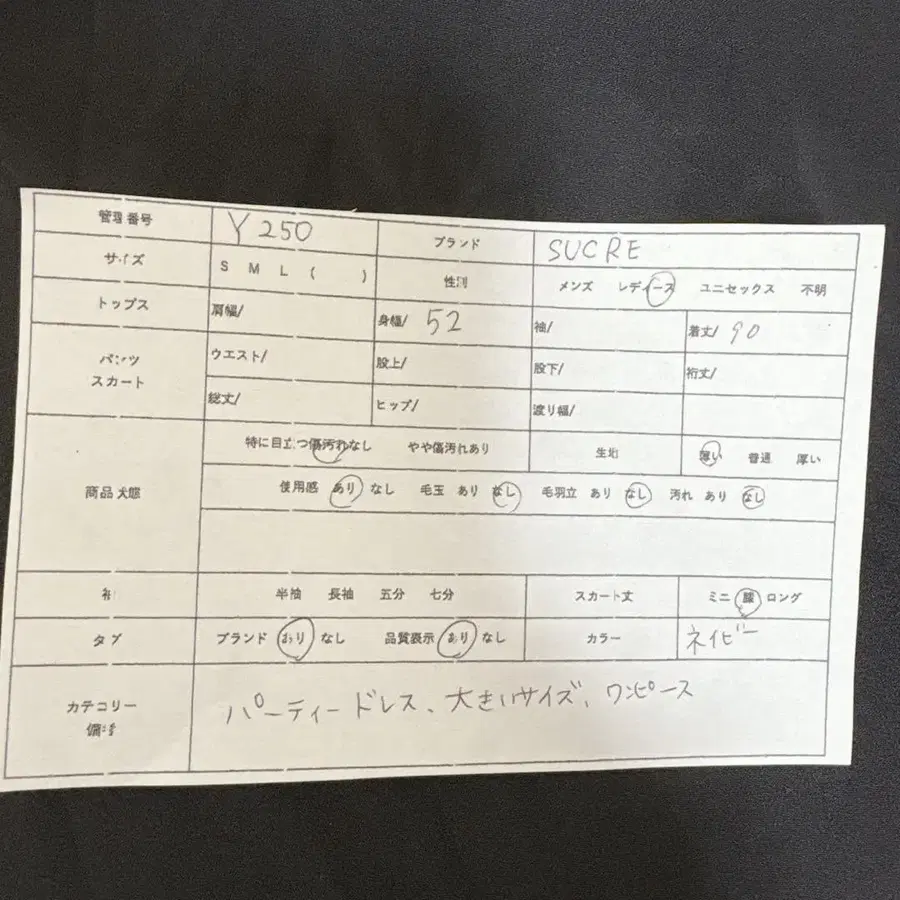 管理番号 Y250 ブランド SUCRE
サイズ S M L ( ) 性別 メンズ レディース ユニセックス 不明
トップス 肩幅/ 身幅/ 52 袖/ 着丈/ 90
パンツ スカート ウエスト/ 股上/ 股下/ 裄丈/
総丈/ ヒップ/ 渡り幅/
商品状態 特に目立つ傷汚れなし やや傷汚れあり 生地 薄い 普通 厚い
使用感 あり なし 毛玉 あり なし 毛羽立 あり なし 汚れ あり なし
袖 半袖 長袖 五分 七分 スカート丈 ミニ 膝 ロング
タグ ブランド あり なし 品質表示 あり なし カラー ネイビー
カテゴリー 備考 パーティードレス、大きいサイズ、ワンピース